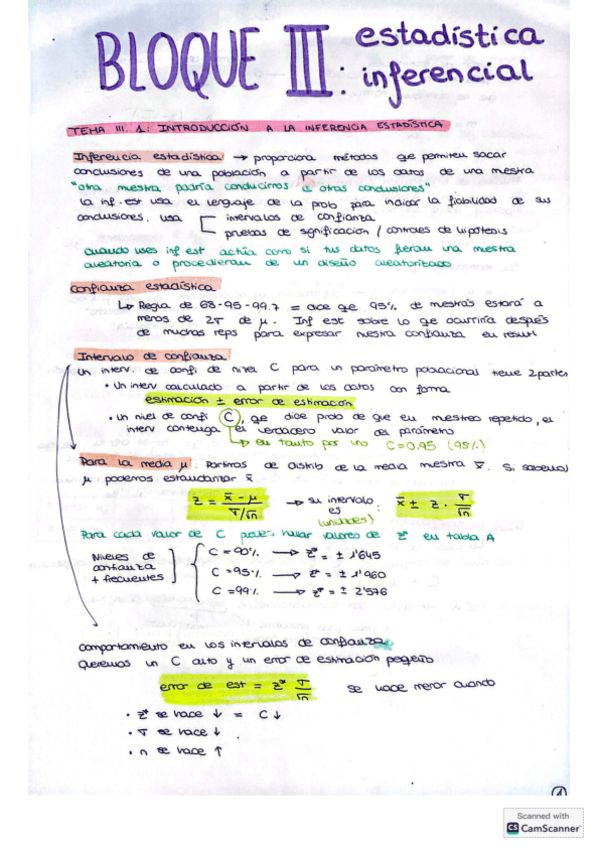 BLOQUE III: estadística inferencial
TEMA III. 1: INTRODUCCIÓN A LA INFERENCIA ESTADÍSTICA
Inferencia estadística → proporciona métodos qe permiten sacar
conclusiones de una población a partir de los datos de una mestra
"otra mestra podría conducirnos a otras conclusiones"
la inf. est usa el lenguaje de la prob para indicar la fiabilidad de sus
conclusiones. usa intervalos de confianza
pruebas de significación / contrales de hipotesis
cuando uses inf est actúa como si tus datos fueran una mestra
aleatoria o procedieran de un diseño aleatorizado
Confianza estadística
↳ Regla de 68-95-99.7 = dice qe 95% de mestras estará a
menos de 2σ de μ. Inf est sobre lo qe ocurriría después
de muchas reps para expresar nuestra confianza en result
Intervalo de confianza
Un interv. de confi de nivel C para un parámetro poblacional tiene 2 partes
• Un interv calculado a partir de los datos con forma
estimación ± error de estimación
• un nivel de confi C, qe dice prob de qe en mestreo repetido, el
interv contenga el verdadero valor del parámetro
↳ en tanto por uno C=0.95 (95%)
Para la media μ: Partimos de distrib de la media mestra x̄. Si sabemos
μ podemos estandarizar x̄
z = x̄ - μ / σ/√n → su intervalo es (unidades) : x̄ ± z · σ/√n
Para cada valor de C podes hallar valores de z* en tabla A
Niveles de confianza + frecuentes
C = 90% → z* = ± 1'645
C = 95% → z* = ± 1'960
C = 99% → z* = ± 2'576
comportamiento en los intervalos de confianza
Queremos un C alto y un error de estimación peqeño
error de est = z* σ/√n se hace menor cuando
• z* se hace ↓ = C ↓
• σ se hace ↓
• n se hace ↑
1
Scanned with
CS CamScanner